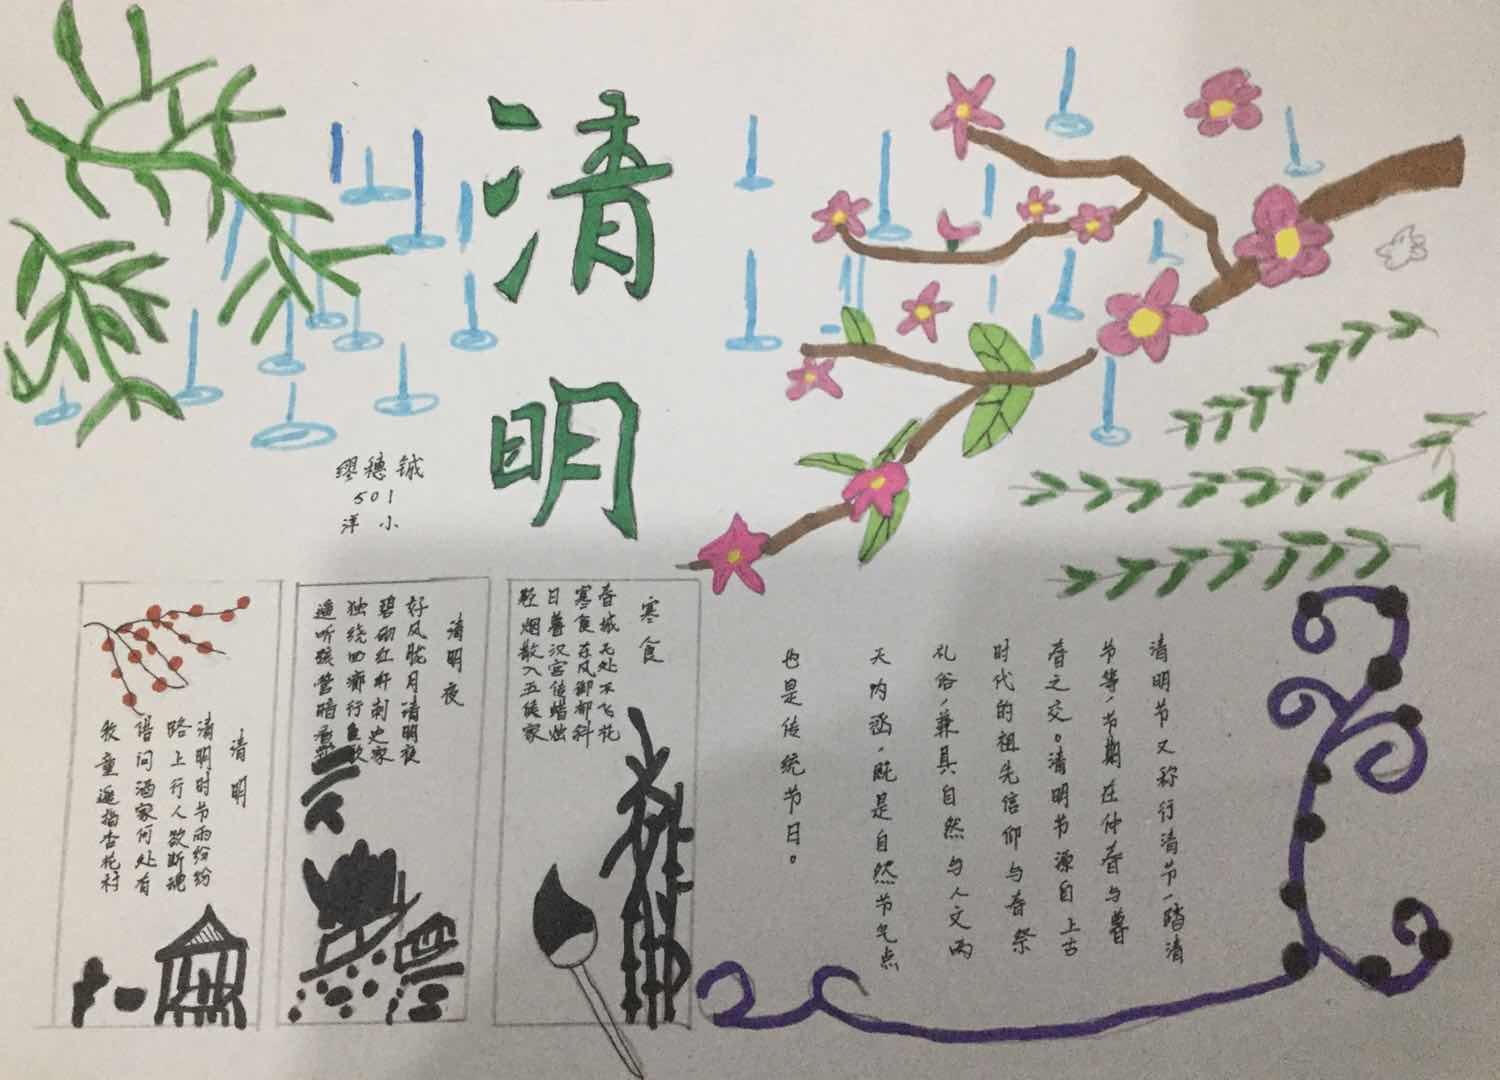 清明
缪穗铖
501
洋小
清明节又称行清节、踏清
节等，节期在仲春与暮
春之交。清明节源自上古
时代的祖先信仰与春祭
礼俗，兼具自然与人文两
天内涵，既是自然节气点
也是传统节日。
寒食
春城无处不飞花
寒食东风御柳斜
日暮汉宫传蜡烛
轻烟散入五侯家
清明夜
好风胧月清明夜
碧砌红轩刺史家
独绕回廊行复歇
遥听弦管暗看
清明
清明时节雨纷纷
路上行人欲断魂
借问酒家何处有
牧童遥指杏花村